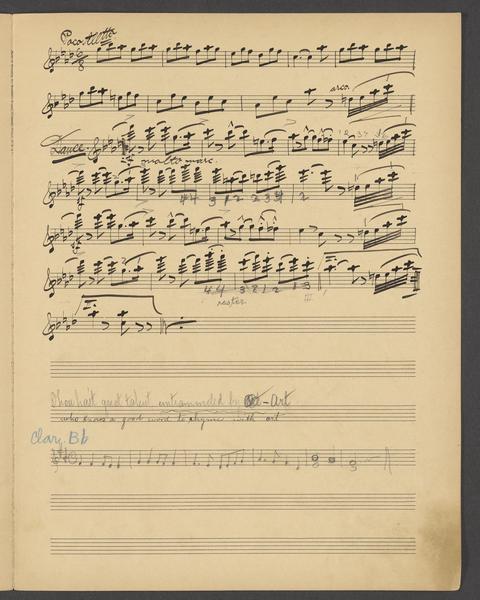 Poco
arco.
Dance.
molto marc.
4 4 3 1 2 2 3 4 1 2
4 4 3 2 1 2 1 3
rester.
Thou hast great talent untrammeled by Art
who knows a good word to rhyme with art
Clar. Bb